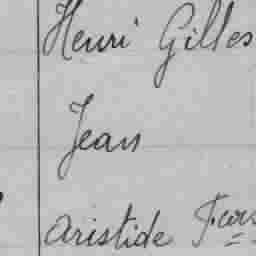 Henri Gilles
Jean
Aristide